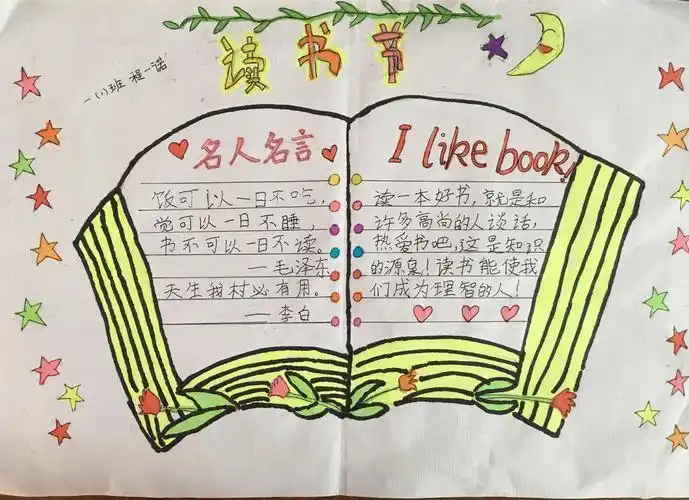 读书节
一(1)班 程一诺
名人名言
饭可以一日不吃，
觉可以一日不睡，
书不可以一日不读。
——毛泽东
天生我村必有用。
——李白
I like book!
读一本好书，就是和
许多高尚的人谈话，
热爱书吧，这是知识
的源泉！读书能使我
们成为理智的人！